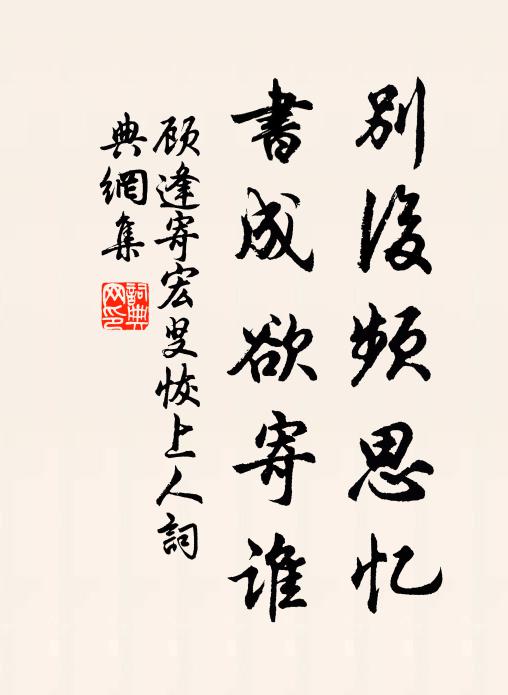 别後频思忆
書成欲寄谁
顾逢寄宏叟恢上人詞
典網集
詞典网印